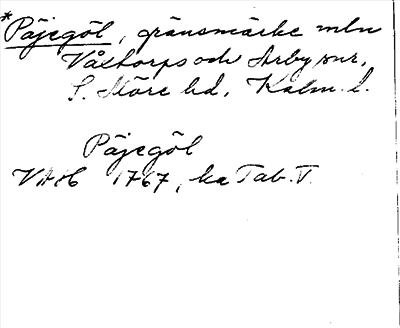 *Päjegöl, gränsmärke mln
Våltorps och Arby snr,
S. Möre hd, Kalm. l.
Päjegöl
VAH 1767, ka Tab. V.